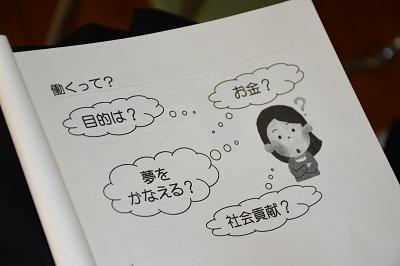 働くって？
お金？
目的は？
？
夢を
かなえる？
社会貢献？